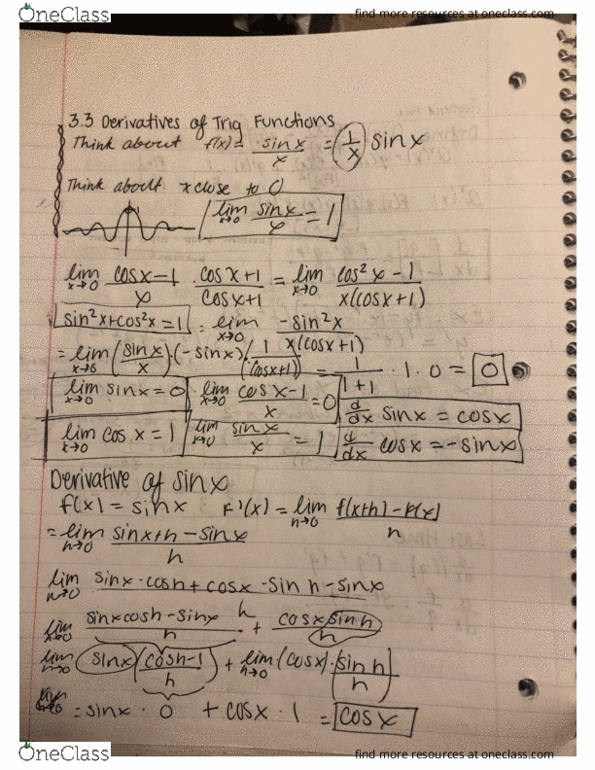 OneClass
find more resources at oneclass.com
3.3 Derivatives of Trig Functions
Think about f(x) = sinx/x = (1/x) sinx
Think about x close to 0
lim x→0 sinx/x = 1
lim x→0 cosx-1/x · cosx+1/cosx+1 = lim x→0 cos²x-1/x(cosx+1)
sin²x+cos²x=1 = lim x→0 -sin²x/x(cosx+1)
= lim x→0 (sinx/x)·(-sinx)(1/(cosx+1)) = 1/1+1 · 1 · 0 = 0
lim x→0 sinx=0 lim x→0 cosx-1/x = 0 d/dx sinx = cosx
lim x→0 cosx=1 lim x→0 sinx/x = 1 d/dx cosx = -sinx
Derivative of sinx
f(x) = sinx F'(x) = lim h→0 f(x+h) - f(x)/h
= lim h→0 sinx+h - sinx/h
lim h→0 sinx·cosh + cosx·sinh - sinx/h
lim x→0 sinxcosh - sinx/h + cosx sinh/h
lim h→0 sinx (cosh-1/h) + lim h→0 (cosx)·(sinh/h)
lim h→0 = sinx · 0 + cosx · 1 = cosx
OneClass
find more resources at oneclass.com